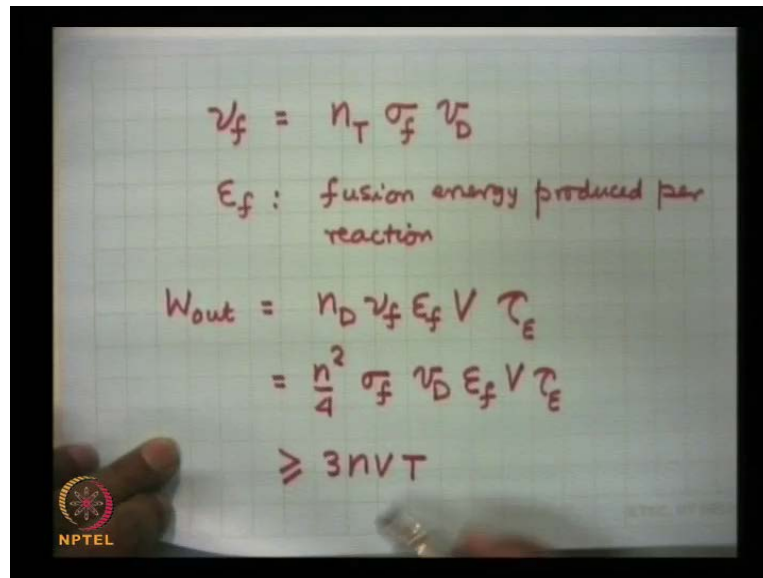 ν_f = n_T σ_f v_D
ε_f : fusion energy produced per
reaction
W_out = n_D ν_f ε_f V τ_E
= n²/4 σ_f v_D ε_f V τ_E
≥ 3nVT
NPTEL